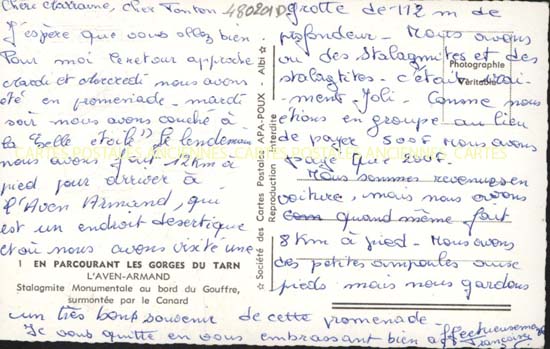 Chère Marraine, cher Tonton
J'espère que vous allez bien
Pour moi le retour approche
Mardi et Mercredi nous avons
été en promenade. mardi
soir nous avons couché à
la belle étoile" Le lendemain
nous avons fait 12 km à
pied pour arriver à
l'Aven Armand, qui
est un endroit désertique
et où nous avons visité une
1 EN PARCOURANT LES GORGES DU TARN
L'AVEN-ARMAND
Stalagmite Monumentale au bord du Gouffre,
surmontée par le Canard
☆ Société des Cartes Postales APA-POUX - Albi ☆
Reproduction Interdite
480201D
grotte de 112 m de
profondeur - Nous avons
vu des stalagmites et des
stalagtites. c'était vrai-
ment Joli. Comme nous
étions en groupe au lieu
de payer 500F nous avons
payé que 200F.
Nous sommes revenues en
voiture, mais nous avons
quand même fait
8 km à pied. Nous avons
des petites ampoules aux
pieds mais nous gardons
un très bons souvenir de cette promenade.
Je vous quitte en vous embrassant bien affectueusement
Françoise
Photographie
Véritable
CARTES POSTALES ANCIENNES CARTES